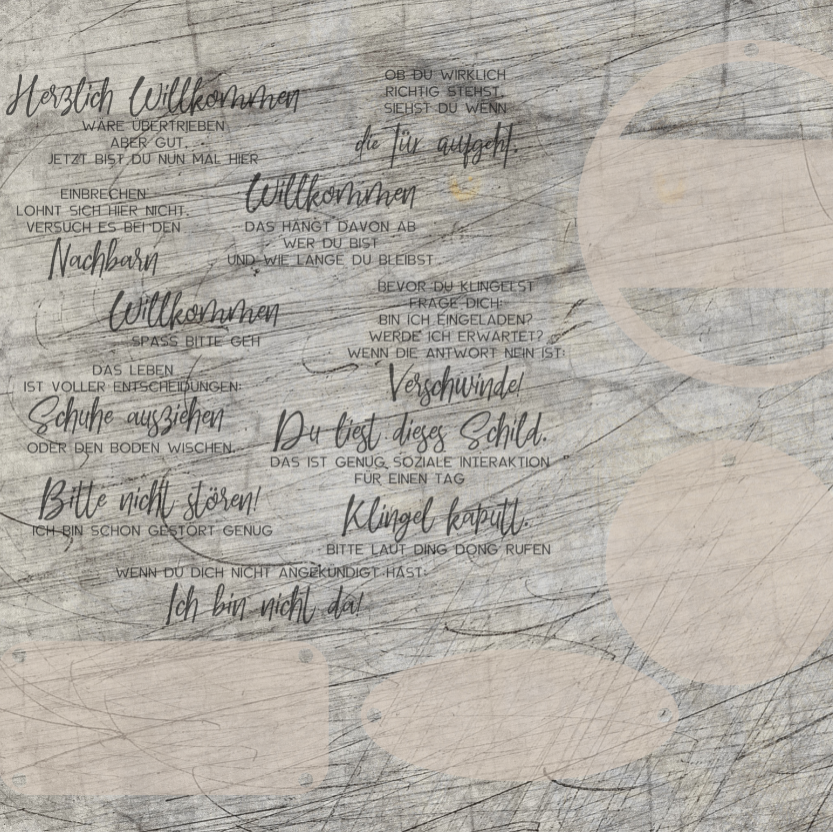 Herzlich Willkommen
WÄRE ÜBERTRIEBEN
ABER GUT...
JETZT BIST DU NUN MAL HIER
OB DU WIRKLICH
RICHTIG STEHST,
SIEHST DU WENN
die Tür aufgeht.
EINBRECHEN
LOHNT SICH HIER NICHT.
VERSUCH ES BEI DEN
Nachbarn
Willkommen
DAS HÄNGT DAVON AB
WER DU BIST
UND WIE LANGE DU BLEIBST
Willkommen
SPASS BITTE GEH
BEVOR DU KLINGELST
FRAGE DICH:
BIN ICH EINGELADEN?
WERDE ICH ERWARTET?
WENN DIE ANTWORT NEIN IST:
Verschwinde!
DAS LEBEN
IST VOLLER ENTSCHEIDUNGEN:
Schuhe ausziehen
ODER DEN BODEN WISCHEN.
Du liest dieses Schild.
DAS IST GENUG SOZIALE INTERAKTION
FÜR EINEN TAG
Bitte nicht stören!
ICH BIN SCHON GESTÖRT GENUG
Klingel kaputt.
BITTE LAUT DING DONG RUFEN
WENN DU DICH NICHT ANGEKÜNDIGT HAST:
Ich bin nicht da!